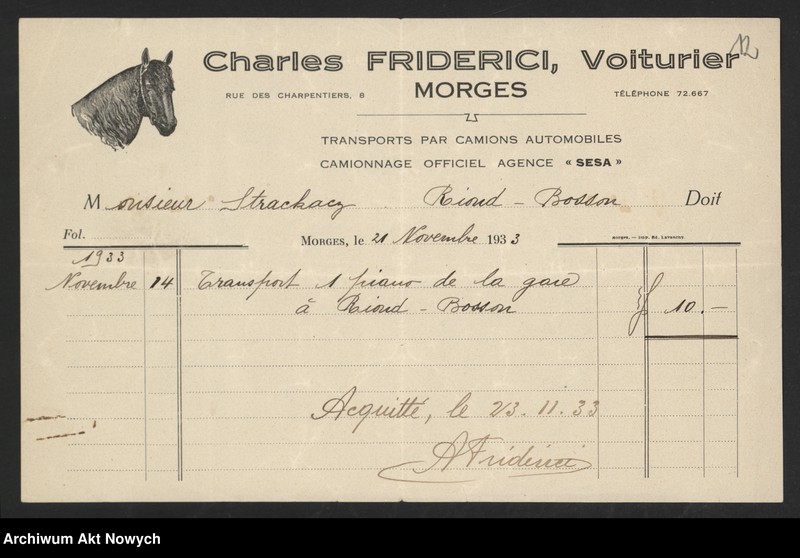 12
Charles FRIDERICI, Voiturier
RUE DES CHARPENTIERS, 8 MORGES TÉLÉPHONE 72.667
TRANSPORTS PAR CAMIONS AUTOMOBILES
CAMIONNAGE OFFICIEL AGENCE « SESA »
Monsieur Strackacz Riond - Bosson Doit
Fol.
MORGES, le 21 Novembre 1933
MORGES. — IMP. ED. LAVANCHY
1933
Novembre 14 Transport 1 piano de la gare
à Riond - Bosson f 10.—
Acquitté, le 23.11.33
AFriderici
Archiwum Akt Nowych